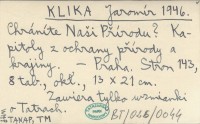 KLIKA Jaromír 1946.
Chráníte Naši Přírodu? Ka-
pitoly z ochrany přírody a
krajiny. — Praha. Strom, 143,
8 tab., okt., 13 x 21 cm.
Zawiera tylko wzmianki
o Tatrach.
TAKAP, TM
BT/026/0044